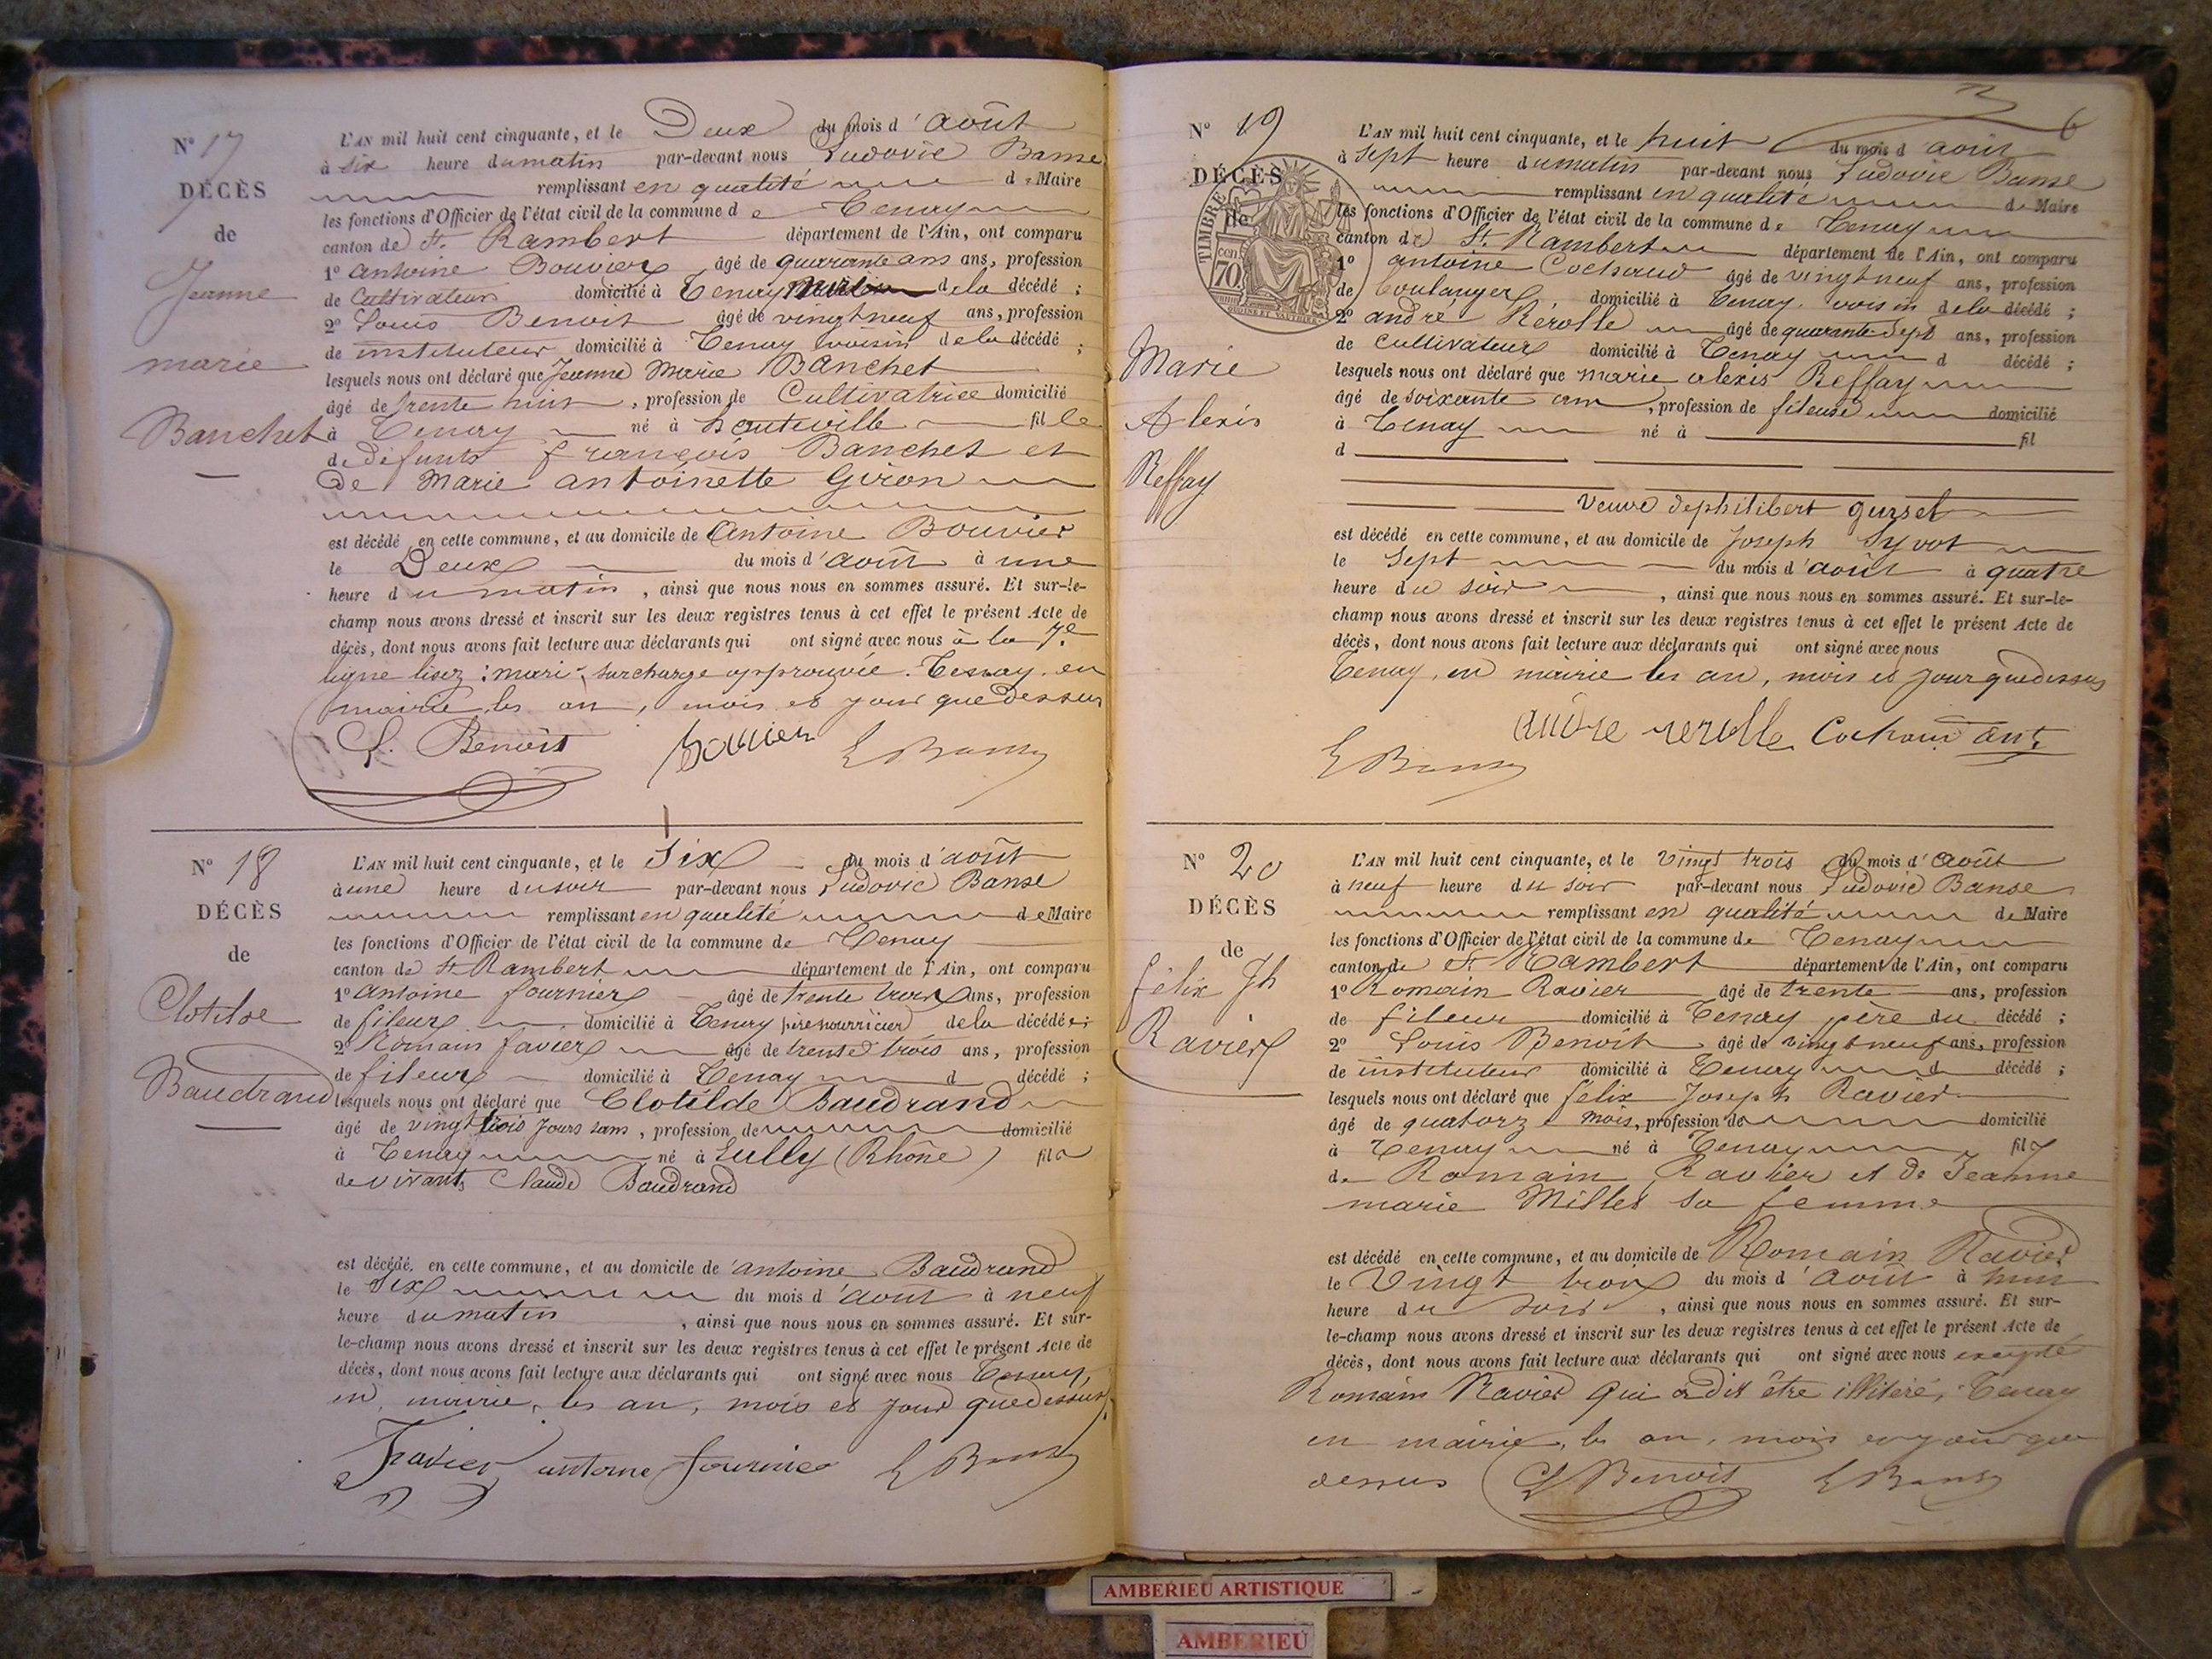 N° 17
DÉCÈS
de
Jeanne
marie
Banchet
L'AN mil huit cent cinquante, et le Deux du mois d'août
à six heure du matin par-devant nous Ludovic Banse
remplissant en qualité de Maire
les fonctions d'Officier de l'état civil de la commune de Tenay
canton de St. Rambert département de l'Ain, ont comparu
1° antoine Bouvier âgé de quarante ans ans, profession
de Cultivateur domicilié à Tenay de la décédé ;
2° Louis Benoit âgé de vingt neuf ans, profession
de instituteur domicilié à Tenay voisin de la décédé ;
lesquels nous ont déclaré que Jeanne Marie Banchet
âgé de trente huit, profession de Cultivatrice domicilié
à Tenay né à hauteville fille
de défunts françois Banchet et
de Marie antoinette Giron
est décédé en cette commune, et au domicile de Antoine Bouvier
le Deux du mois d'août à une
heure du matin, ainsi que nous nous en sommes assuré. Et sur-le-
champ nous avons dressé et inscrit sur les deux registres tenus à cet effet le présent Acte de
décès, dont nous avons fait lecture aux déclarants qui ont signé avec nous à la 7e
ligne lisez : mari, surcharge approuvée. Tenay, en
mairie, les an, mois et jour que dessus
L. Benoit Bouvier L Banse
N° 18
DÉCÈS
de
Clotilde
Baudrand
L'AN mil huit cent cinquante, et le Six du mois d'août
à une heure du soir par-devant nous Ludovic Banse
remplissant en qualité de Maire
les fonctions d'Officier de l'état civil de la commune de Tenay
canton de St Rambert département de l'Ain, ont comparu
1° Antoine fournier âgé de trente trois ans, profession
de fileur domicilié à Tenay père nourricier de la décédée ;
2° Romain favier âgé de trente trois ans, profession
de fileur domicilié à Tenay d décédé ;
lesquels nous ont déclaré que Clotilde Baudrand
âgé de vingt trois jours sans, profession de domicilié
à Tenay né à Lully (Rhône) fil
de vivants Claude Baudrand
est décédé en cette commune, et au domicile de antoine Baudrand
le Six du mois d'août à neuf
heure du matin, ainsi que nous nous en sommes assuré. Et sur-
le-champ nous avons dressé et inscrit sur les deux registres tenus à cet effet le présent Acte de
décès, dont nous avons fait lecture aux déclarants qui ont signé avec nous Tenay,
en mairie, les an, mois et jour que dessus.
favier antoine fournier L Banse
6
N° 19
DÉCÈS
de
TIMBRE
70
Marie
Alexis
Reffay
L'AN mil huit cent cinquante, et le huit du mois d'août
à sept heure du matin par-devant nous Ludovic Banse
remplissant en qualité de Maire
les fonctions d'Officier de l'état civil de la commune de Tenay
canton de St. Rambert département de l'Ain, ont comparu
1° antoine Cochaud âgé de vingt neuf ans, profession
de boulanger, domicilié à Tenay voisin de la décédé ;
2° andré Rerolle âgé de quarante sept ans, profession
de cultivateur domicilié à Tenay d décédé ;
lesquels nous ont déclaré que marie alexis Reffay
âgé de soixante ans, profession de fileuse domicilié
à Tenay né à fil
d
veuve de philibert gurset
est décédé en cette commune, et au domicile de Joseph Syvot
le Sept du mois d'août à quatre
heure du soir, ainsi que nous nous en sommes assuré. Et sur-le-
champ nous avons dressé et inscrit sur les deux registres tenus à cet effet le présent Acte de
décès, dont nous avons fait lecture aux déclarants qui ont signé avec nous
Tenay, en mairie les an, mois et jour que dessus
andre rerolle Cochaud ant.
L Banse
N° 20
DÉCÈS
de
félix Jh
Ravier
L'AN mil huit cent cinquante, et le vingt trois du mois d'août
à neuf heure du soir par-devant nous Ludovic Banse
remplissant en qualité de Maire
les fonctions d'Officier de l'état civil de la commune de Tenay
canton de St Rambert département de l'Ain, ont comparu
1° Romain Ravier âgé de trente ans, profession
de fileur domicilié à Tenay père du décédé ;
2° Louis Benoit âgé de vingt neuf ans, profession
de instituteur domicilié à Tenay d décédé ;
lesquels nous ont déclaré que félix Joseph Ravier
âgé de quatorze mois, profession de domicilié
à Tenay né à Tenay fils
de Romain Ravier et de Jeanne
marie Millet sa femme
est décédé en cette commune, et au domicile de Romain Ravier
le Vingt trois du mois d'août à huit
heure du soir, ainsi que nous nous en sommes assuré. Et sur-
le-champ nous avons dressé et inscrit sur les deux registres tenus à cet effet le présent Acte de
décès, dont nous avons fait lecture aux déclarants qui ont signé avec nous excepté
Romain Ravier qui a dit être illitéré, Tenay
en mairie, les an, mois et jour que
dessus L Benoit L Banse
AMBERIEU ARTISTIQUE
AMBERIEU